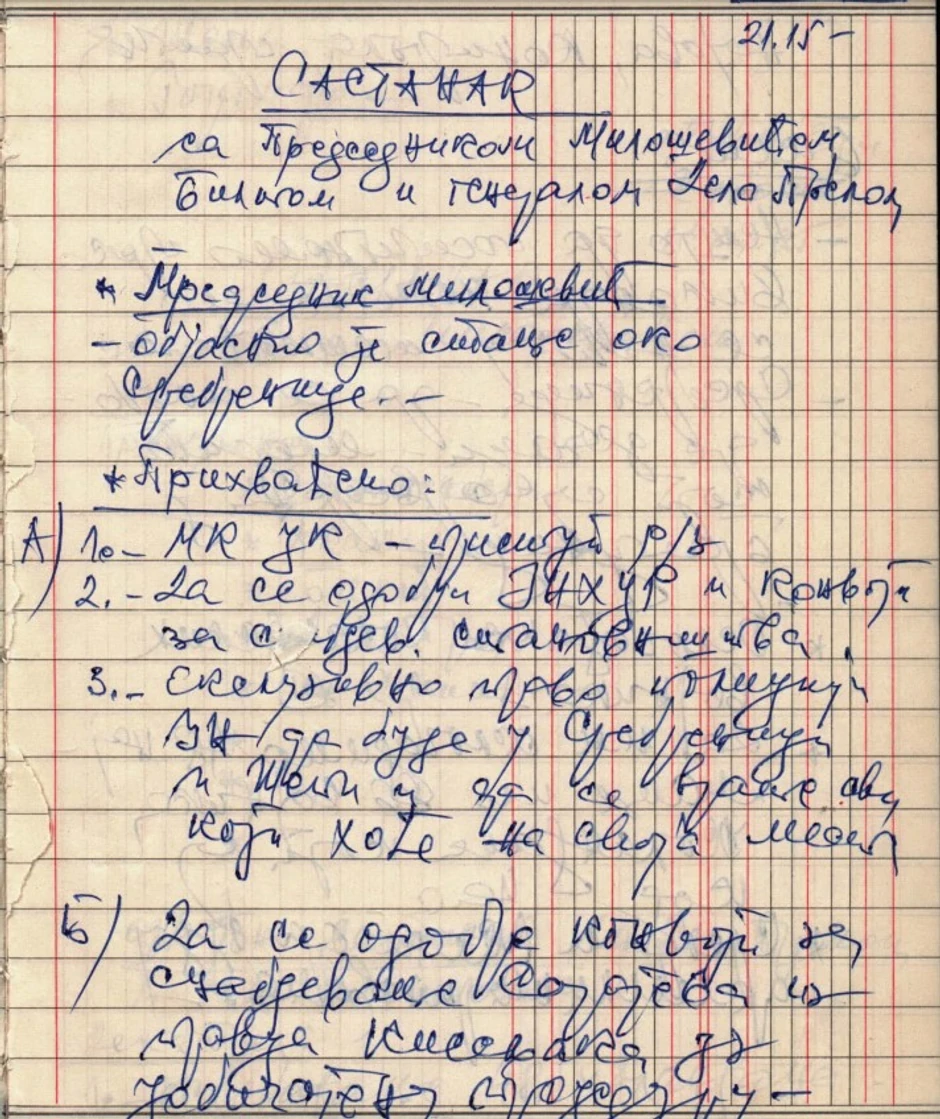 21.15 –
САСТАНАК
са Председником Милошевићем
Билтом и генералом Де ла Преслом
* Председник Милошевић
– објаснио је стање око
Сребренице. –
* Прихваћено:
А) 1. – МК ЦК – приступ р/з
2. – Да се одобри УНХЦР и конвоји
за снабдев. становништва.
3. – ексклузивно право
УН да буде у Сребреници
и Жепи и да се врате сви
који хоће на своја места
Б) Да се одобре конвоји за
снабдевање Сарајева из
правца Кисељака уз
уобичајену процедуру –